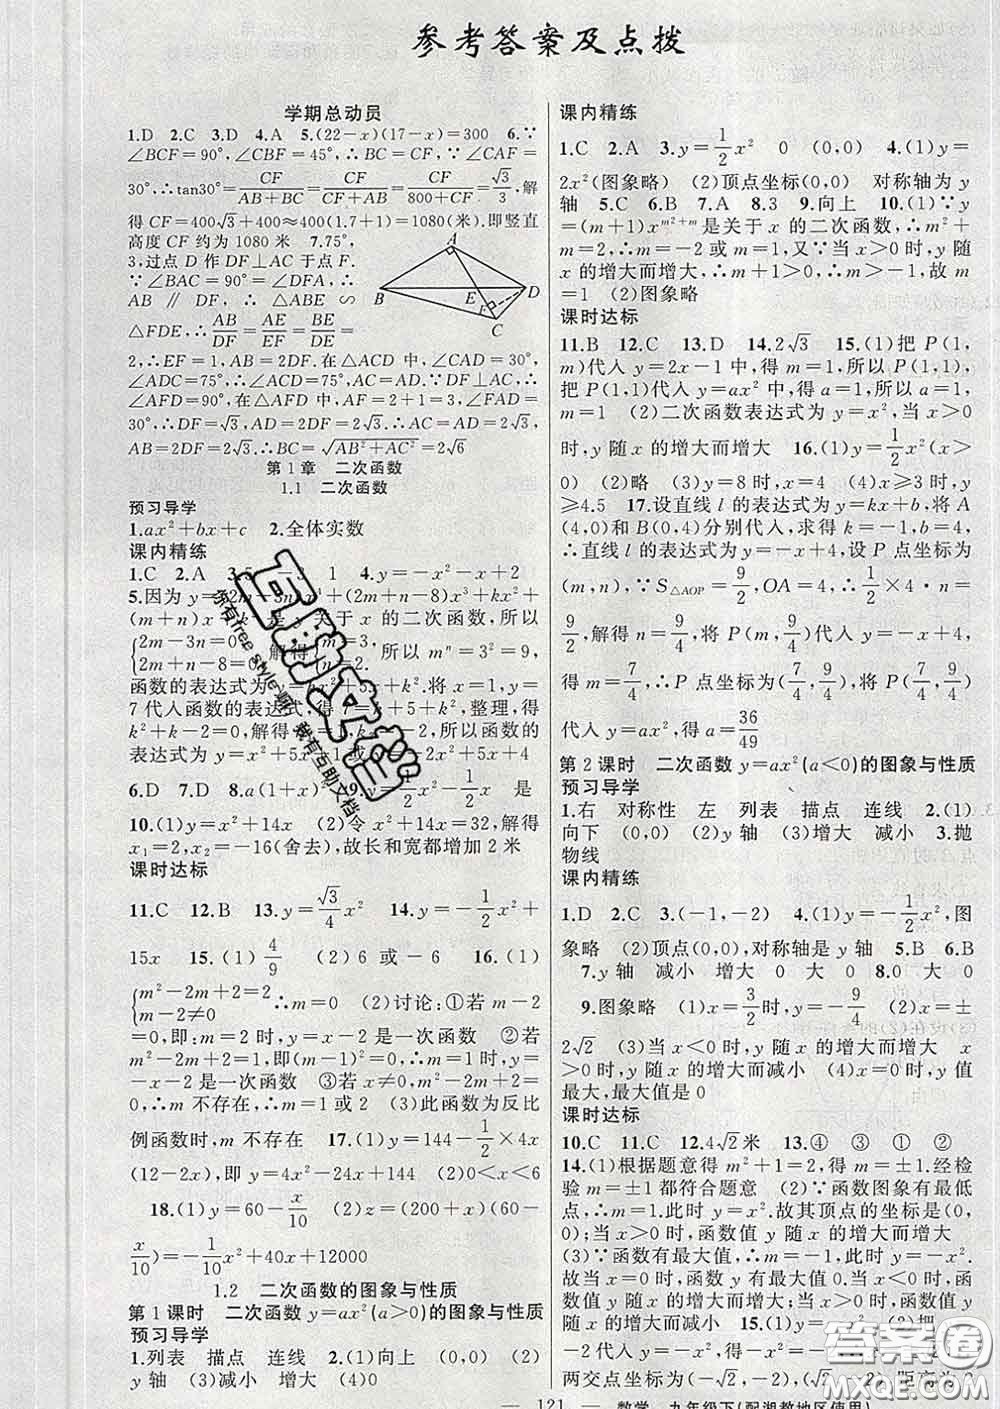 参考答案及点拨
学期总动员
1.D 2.C 3.D 4.A 5.(22-x)(17-x)=300 6.∵
∠BCF=90°,∠CBF=45°,∴BC=CF,∵∠CAF=
30°,∴tan30°=CF/(AB+BC)=CF/(CF+AB)=CF/(800+CF)=√3/3,解
得CF=400√3+400≈400(1.7+1)=1080(米).即竖直
高度CF约为1080米 7.75°,
3,过点D作DF⊥AC于点F.
∵∠BAC=90°=∠DFA,∴
AB∥DF,∴△ABE∽
△FDE,∴AB/DF=AE/EF=BE/DE=
2,∴EF=1,AB=2DF.在△ACD中,∠CAD=30°,
∠ADC=75°,∴∠ACD=75°,∴AC=AD.∵DF⊥AC,∴
∠AFD=90°,在△AFD中,AF=2+1=3,∠FAD=
30°,∴DF=√3,AD=2DF=2√3.∴AC=AD=2√3,
AB=2DF=2√3.∴BC=√(AB²+AC²)=2√6
第1章 二次函数
1.1 二次函数
预习导学
1.ax²+bx+c 2.全体实数
课内精练
1.C 2.A 3.5 -3 1 4.y=-x²-x+2
5.因为y=(2m-3n)x³+kx²+
(m+n)x 是关于x的二次函数,所以
{2m-3n=0, 2m+n-8=0. 解得 m=3, n=2. 所以mⁿ=3²=9,
函数的表达式为y= x²+5x+k².
7代入函数的表达式,得7=k+5+k²,整理,得
k²+k-2=0,解得 所以函数的
表达式为y=x²+5x+ 或 x²+5x+4
6.D 7.D 8.a(1+x)² 9.y= x²+ x 是
10.(1)y=x²+14x (2)令x²+14x=32,解得
x₁=2,x₂=-16(舍去),故长和宽都增加2米
课时达标
11.C 12.B 13.y=√3/4x² 14.y=-1/2x²+
15x 15.(1)4/9 (2)6或-6 16.(1)
{m²-2m+2=2 m-2≠0 ∴m=0 (2)讨论:①若m-2
=0,即:m=2时,y=x-2是一次函数 ②若
m²-2m+2=1,即(m-1)²=0,∴m=1时,
y=-x-2是一次函数 ③若x≠0,m²-2m+2=0,
∴m不存在,∴m=1或2 (3)此函数为反比
例函数时,m不存在 17.(1)y=144-1/2×4x
(12-2x),即y=4x²-24x+144 (2)0<x<6
18.(1)y=60-x/10 (2)z=(200+x)(60-
x/10)=-1/10x²+40x+12000
1.2 二次函数的图象与性质
第1课时 二次函数y=ax²(a>0)的图象与性质
预习导学
1.列表 描点 连线 2.(1)向上 (0,0) (2)
y轴 (3)减小 增大 (4)0
课内精练
1.C 2.A 3.y=1/2x² 0 (0,0) 4.(1)y=
2x²(图象略) (2)顶点坐标(0,0) 对称轴为y
轴 5.C 6.B 7.A 8.3 9.向上 10.(1)∵y
=(m+1)x^(m²+m)是关于x的二次函数,∴m²+
m=2,∴m=-2或m=1,又∵当x>0时,y随
x的增大而增大,∴m+1>0,∴m>-1,故
m=1 (2)图象略
课时达标
11.B 12.C 13.D 14.2√3 15.(1)把P(1,
m)代入y=2x-1中,得m=1,所以P(1,1),
把P(1,1)代入y=ax²中,得a=1,所以a=1,
m=1 (2)二次函数表达式为y=x²,当x>0
时,y随x的增大而增大 16.(1)y=1/2x²(x>
0) (2)略 (3)y=8时,x=4 (4)x≥3时,y
≥4.5 17.设直线l的表达式为y=kx+b,将A
(4,0)和B(0,4)分别代入,求得k=-1,b=4,
∴直线l的表达式为y=-x+4,设P点坐标为
(m,n),∵S△AOP=9/2,OA=4,∴1/2×4·n=
9/2,解得n=9/4,将P(m,9/4)代入y=-x+4,
得m=7/4,∴P点坐标为(7/4,9/4),将(7/4,9/4)
代入y=ax²,得a=36/49
第2课时 二次函数y=ax²(a<0)的图象与性质
预习导学
1.右 对称性 左 列表 描点 连线 2.(1)
向下 (0,0) (2)y轴 (3)增大 减小 3.抛
物线
课内精练
1.D 2.C 3.(-1,-2) 4.(1)y=-1/2x²,图
象略 (2)顶点(0,0),对称轴是y轴 5.B 6.B
7.y轴 减小 增大 0 大 0 8.0 大 0
9.图象略 (1)x=3/2时,y=-9/4 (2)x=±
2√2 (3)当x<0时,y随x的增大而增大 x
>0时,y随x的增大而减小 (4)x=0时,y值
最大,最大值是0
课时达标
10.C 11.C 12.4√2米 13.④ ③ ① ②
14.(1)根据题意得m²+1=2,得m=±1.经检
验m=±1都符合题意 (2)∵函数图象有最低
点,∴m=1,∴y=x².故其顶点的坐标是(0,0),
当x>0时,函数值y随x的增大而增大
(3)∵函数有最大值,∴m=-1,∴y=-x².
故当x=0时,函数y有最大值0.当x>0时,函
数值y随x的增大而减小;当x<0时,函数值
y随x的增大而增大 15.(1)y=-x² (2)把
-2代入y=-x²,得-x²=-2,x=±√2
两交点坐标为(-√2,-2),(√2,-2) 距离为2
121 数学 九年级下(配湘教地区使用)
A
B
E
D
F
C
互助文档
所有free style啊 我有互助文档
答案圈